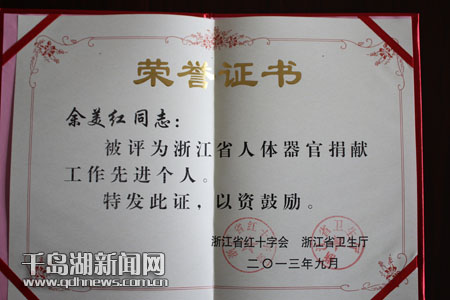 荣誉证书
余美红同志：
被评为浙江省人体器官捐献
工作先进个人。
特发此证，以资鼓励。
浙江省红十字会 浙江省卫生厅
二〇一三年九月
千岛湖新闻网
www.qdhnews.com.cn